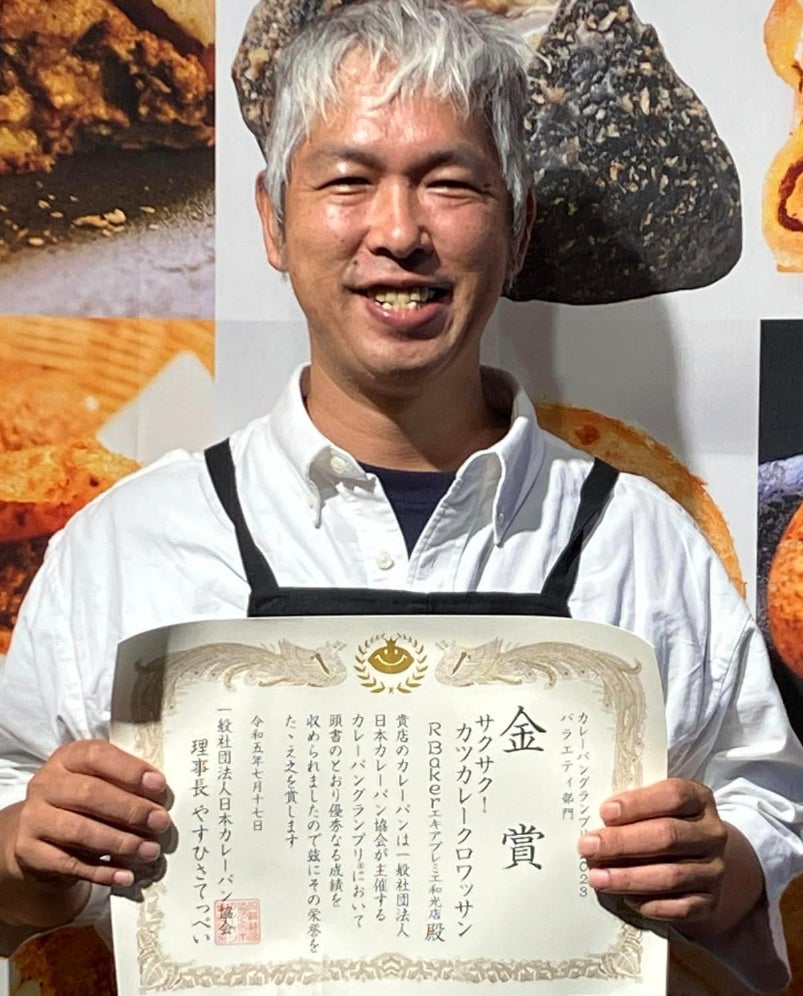 カレーパングランプリ®2023
バラエティ部門
金賞
サクサク!
カツカレークロワッサン
RBakerエキアプレミエ和光店 殿
貴店のカレーパンは一般社団法人
日本カレーパン協会が主催する
カレーパングランプリ®において
頭書のとおり優秀なる成績を
収められましたので茲にその栄誉を
たゝえ之を賞します
令和五年七月十七日
一般社団法人日本カレーパン協会
理事長 やすひさてっぺい